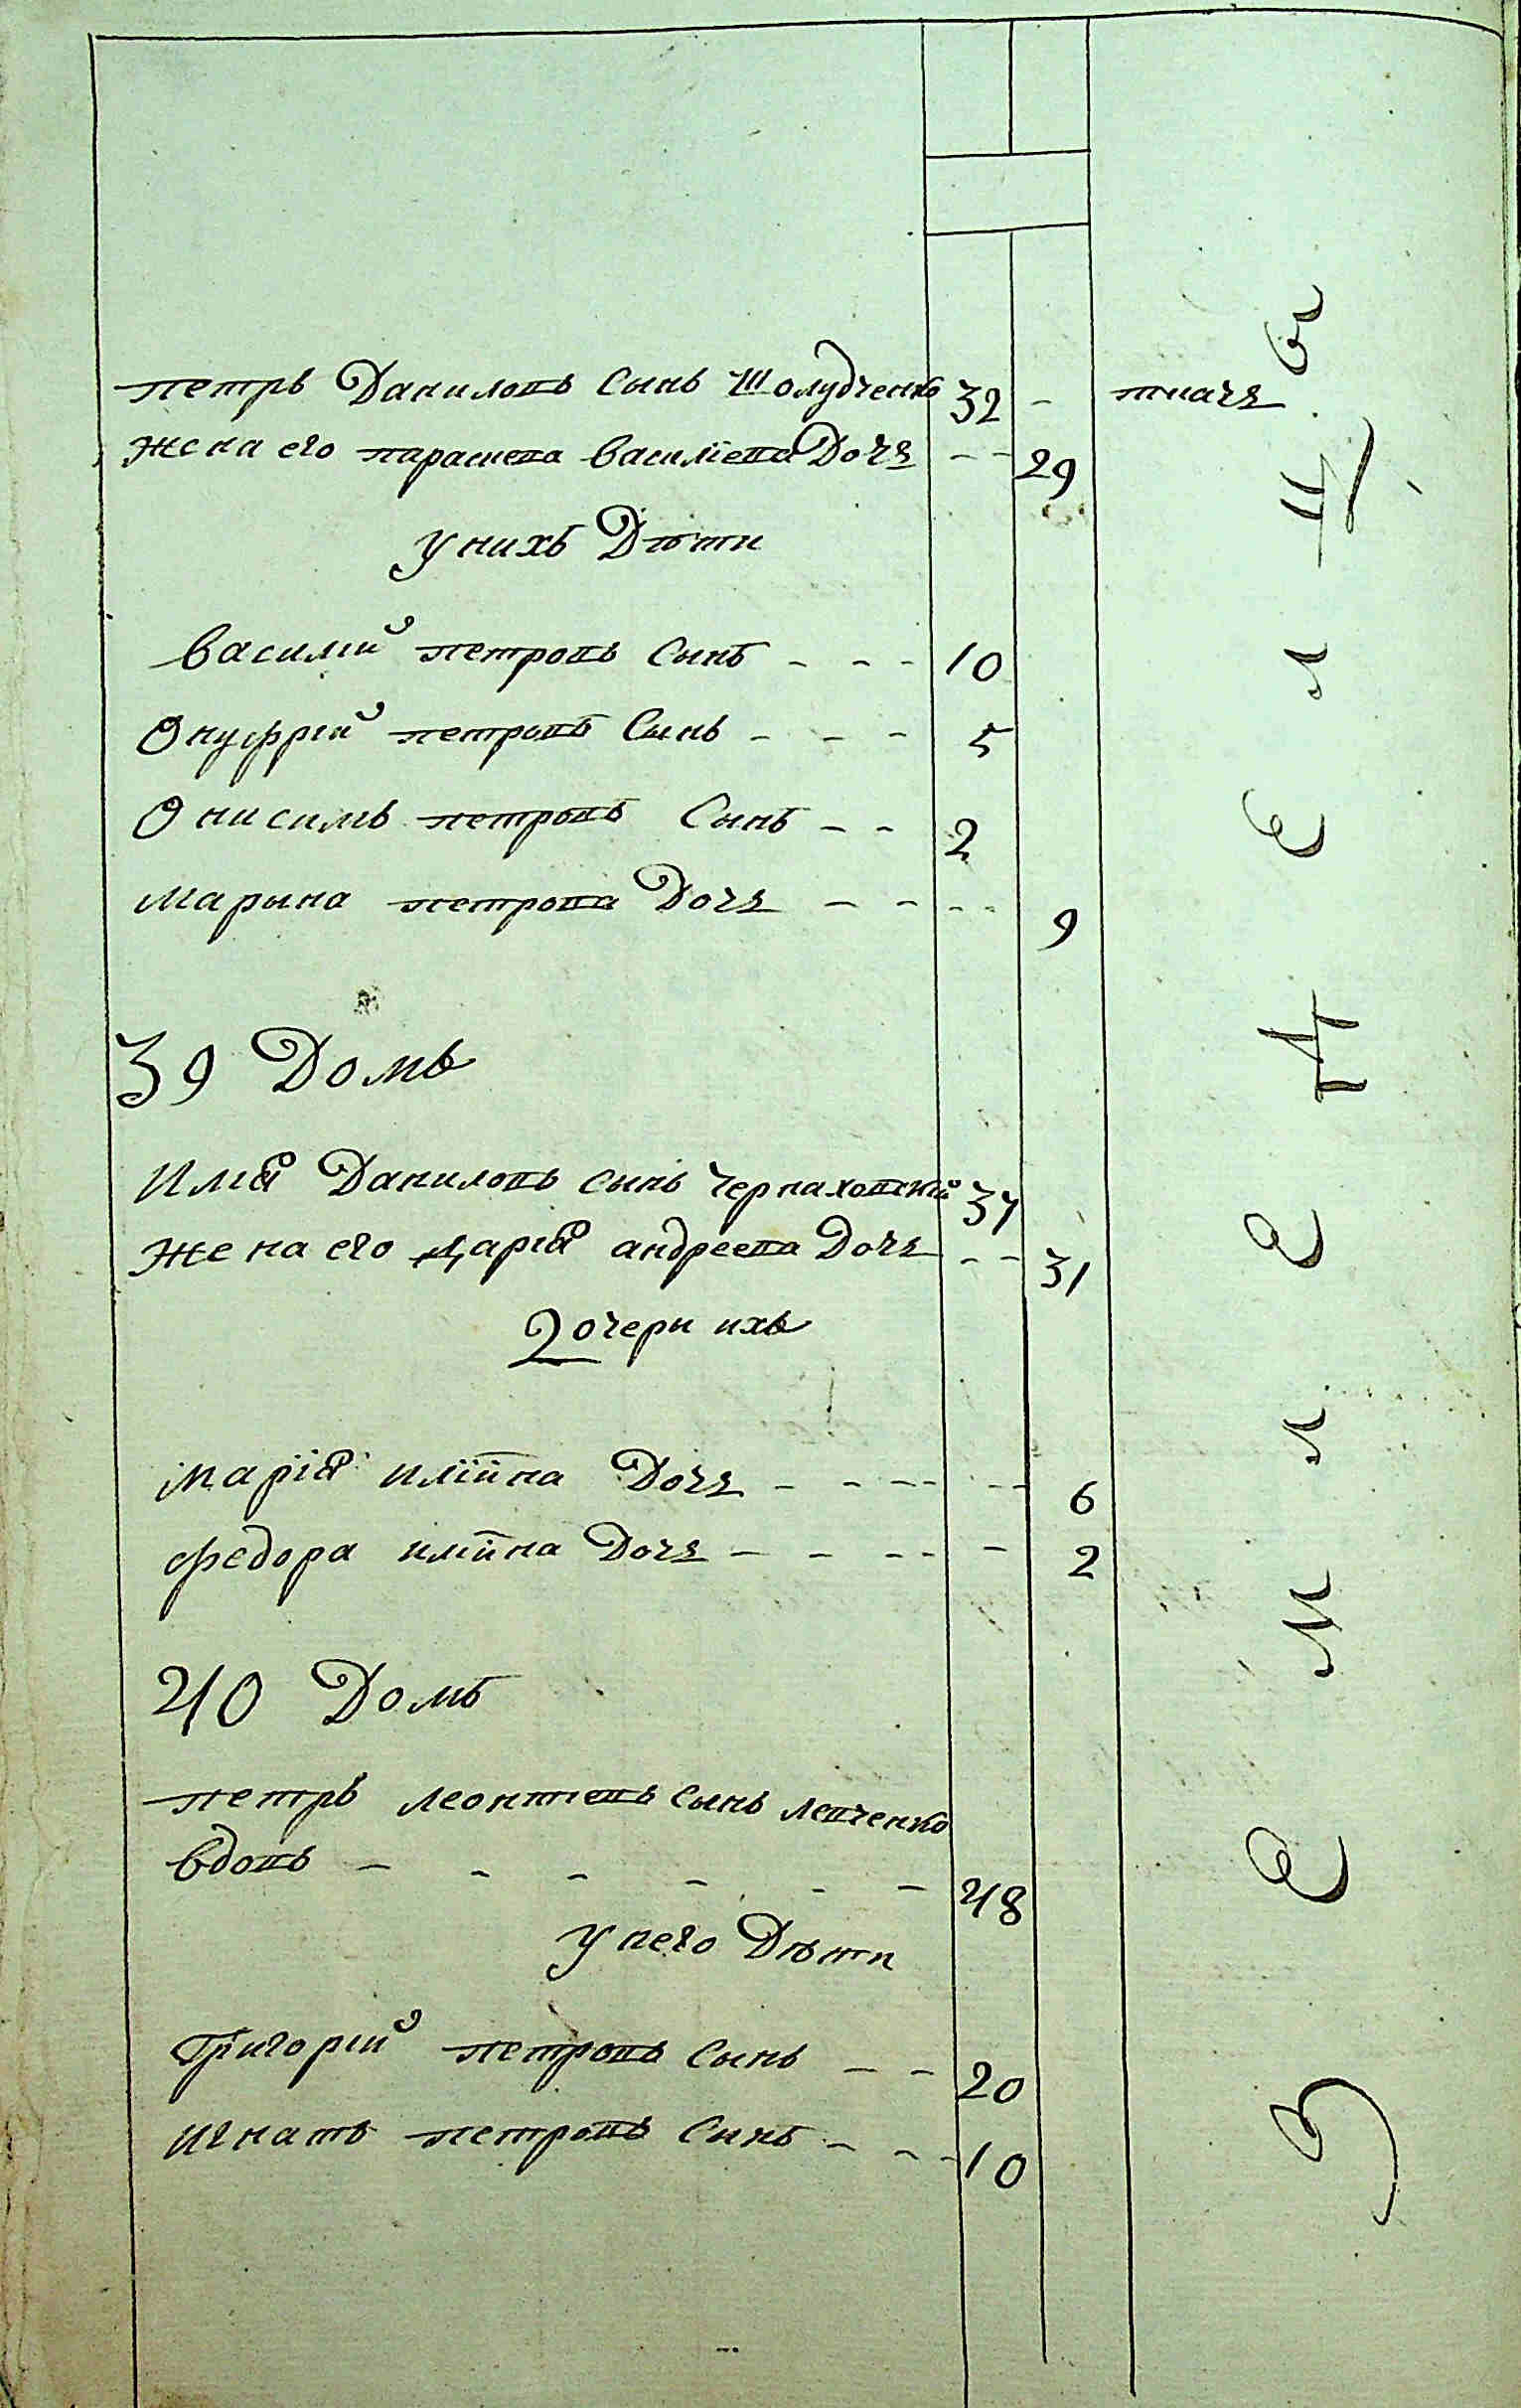 петръ Даниловъ Сынъ Шолудченко 32 - ткачъ
жена его параскева василïева Дочъ - - 29
у нихъ Дѣти
василiй петровъ Сынъ - - - 10
Онуфрiй петровъ Сынъ - - - 5
Онисимъ петровъ Сынъ - - 2
марына петрова Дочъ - - - - 9
39 Домъ
Илiя Даниловъ сынъ Черняховскiй 37
жена его дарiя андреева Дочъ - - 31
Дочери ихъ
марïя илïйна Дочъ - - - - - - 6
федора илiйна Дочъ - - - - - 2
40 Домъ
петръ леонтiевъ сынъ левченко
вдовъ - - - - - - 48
у него Дѣти
Григорiй петровъ Сынъ - - 20
игнатъ петровъ Сынъ - - - 10
ЗЕМЛЕДЕЛЦЫ